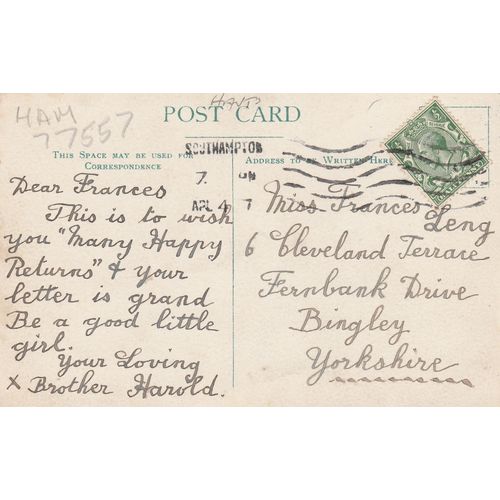 HAM
77557
HANTS
POST CARD
SOUTHAMPTON
7. PM
APL 4
THIS SPACE MAY BE USED FOR
CORRESPONDENCE
ADDRESS TO BE WRITTEN HERE
Dear Frances
This is to wish
you "Many Happy
Returns" & your
letter is grand
Be a good little
girl.
Your Loving
x Brother Harold.
Miss Frances
Leng
6 Cleveland Terrace
Fernbank Drive
Bingley
Yorkshire